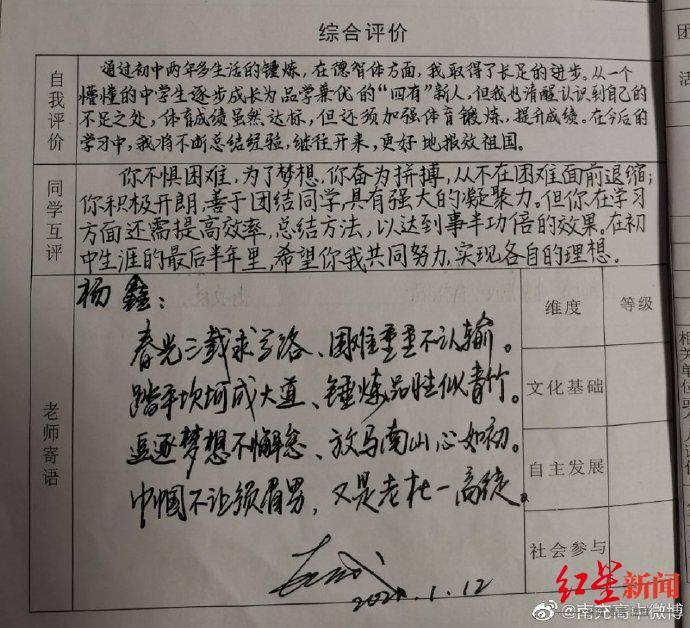 综合评价
团
活
自我评价
通过初中两年多生活的锤炼，在德智体方面，我取得了长足的进步。从一个
懵懂的中学生逐步成长为品学兼优的“四有”新人。但我也清醒认识到自己的
不足之处，体育成绩虽然达标，但还须加强体育锻炼，提升成绩。在今后的
学习中，我将不断总结经验，继往开来，更好地报效祖国。
同学互评
你不惧困难，为了梦想，你奋力拼搏，从不在困难面前退缩；
你积极开朗，善于团结同学，具有强大的凝聚力。但你在学习
方面还需提高效率，总结方法，以达到事半功倍的效果。在初
中生涯的最后半年里，希望你我共同努力，实现各自的理想。
老师寄语
杨鑫：
春光三载求学路、困难重重不认输。
踏平坎坷成大道、锤炼品性似青竹。
追逐梦想不懈怠、放马南山心如初。
巾帼不让须眉男，又是老杜一高徒。
2021.1.12
维度
等级
文化基础
自主发展
社会参与
相关
单
位
红星新闻
@南充高中微博